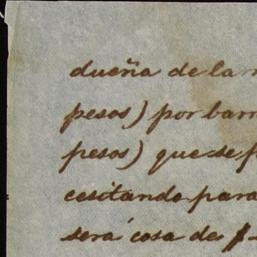 dueña de la m
pesos) por barr
pesos) que se f
cesitando para
será cosa de $